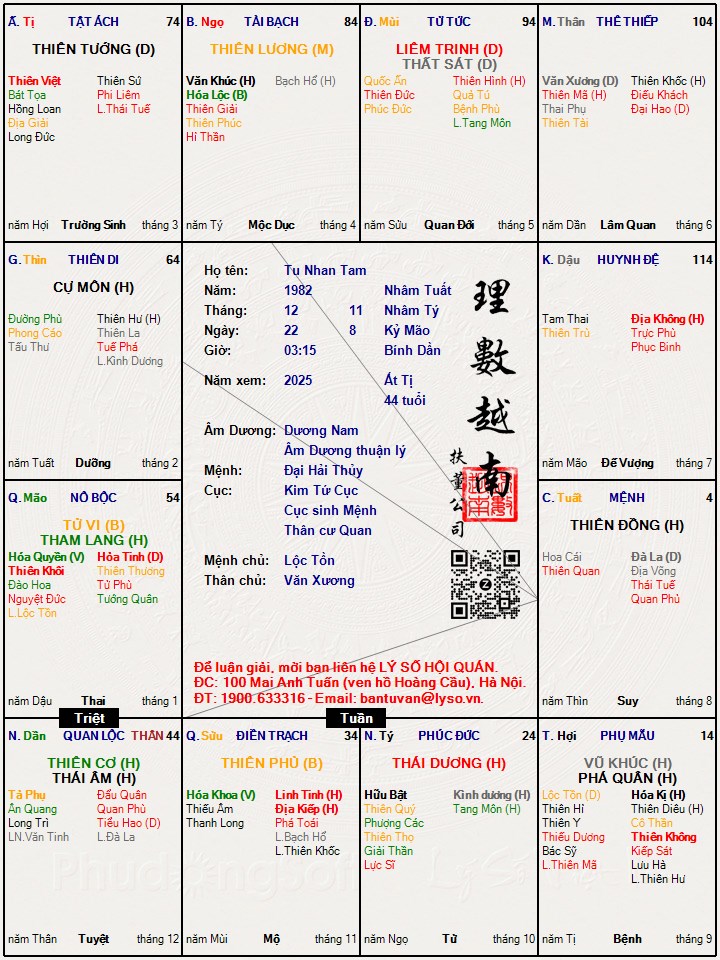 Ấ. Tị TẬT ÁCH 74
THIÊN TƯỚNG (D)
Thiên Việt Thiên Sứ
Bát Tọa Phi Liêm
Hồng Loan L.Thái Tuế
Địa Giải
Long Đức
năm Hợi Trường Sinh tháng 3
B. Ngọ TÀI BẠCH 84
THIÊN LƯƠNG (M)
Văn Khúc (H) Bạch Hổ (H)
Hóa Lộc (B)
Thiên Giải
Thiên Phúc
Hỉ Thần
năm Tý Mộc Dục tháng 4
Đ. Mùi TỬ TỨC 94
LIÊM TRINH (D)
THẤT SÁT (D)
Quốc Ấn Thiên Hình (H)
Thiên Đức Quả Tú
Phúc Đức Bệnh Phù
L.Tang Môn
năm Sửu Quan Đới tháng 5
M. Thân THÊ THIẾP 104
Văn Xương (D) Thiên Khốc (H)
Thiên Mã (H) Điếu Khách
Thai Phụ Đại Hao (D)
Thiên Tài
năm Dần Lâm Quan tháng 6
G. Thìn THIÊN DI 64
CỰ MÔN (H)
Đường Phù Thiên Hư (H)
Phong Cáo Thiên La
Tấu Thư Tuế Phá
L.Kình Dương
năm Tuất Dưỡng tháng 2
Họ tên: Tu Nhan Tam
Năm: 1982 Nhâm Tuất
Tháng: 12 11 Nhâm Tý
Ngày: 22 8 Kỷ Mão
Giờ: 03:15 Bính Dần
Năm xem: 2025 Ất Tị
44 tuổi
Âm Dương: Dương Nam
Âm Dương thuận lý
Mệnh: Đại Hải Thủy
Cục: Kim Tứ Cục
Cục sinh Mệnh
Thân cư Quan
Mệnh chủ: Lộc Tồn
Thân chủ: Văn Xương
理數越南
扶董公司
Để luận giải, mời bạn liên hệ LÝ SỐ HỘI QUÁN.
ĐC: 100 Mai Anh Tuấn (ven hồ Hoàng Cầu), Hà Nội.
ĐT: 1900.633316 - Email: bantuvan@lyso.vn.
K. Dậu HUYNH ĐỆ 114
Tam Thai Địa Không (H)
Thiên Trù Trực Phù
Phục Binh
năm Mão Đế Vượng tháng 7
Q. Mão NÔ BỘC 54
TỬ VI (B)
THAM LANG (H)
Hóa Quyền (V) Hỏa Tinh (D)
Thiên Khôi Thiên Thương
Đào Hoa Tử Phù
Nguyệt Đức Tướng Quân
L.Lộc Tồn
năm Dậu Thai tháng 1
C. Tuất MỆNH 4
THIÊN ĐỒNG (H)
Hoa Cái Đà La (D)
Thiên Quan Địa Võng
Thái Tuế
Quan Phủ
năm Thìn Suy tháng 8
Triệt
Tuần
N. Dần QUAN LỘC THÂN 44
THIÊN CƠ (H)
THÁI ÂM (H)
Tả Phụ Đẩu Quân
Ân Quang Quan Phù
Long Trì Tiểu Hao (D)
LN.Văn Tinh L.Đà La
năm Thân Tuyệt tháng 12
Q. Sửu ĐIỀN TRẠCH 34
THIÊN PHỦ (B)
Hóa Khoa (V) Linh Tinh (H)
Thiếu Âm Địa Kiếp (H)
Thanh Long Phá Toái
L.Bạch Hổ
L.Thiên Khốc
năm Mùi Mộ tháng 11
N. Tý PHÚC ĐỨC 24
THÁI DƯƠNG (H)
Hữu Bật Kình dương (H)
Thiên Quý Tang Môn (H)
Phượng Các
Thiên Thọ
Giải Thần
Lực Sĩ
năm Ngọ Tử tháng 10
T. Hợi PHỤ MẪU 14
VŨ KHÚC (H)
PHÁ QUÂN (H)
Lộc Tồn (D) Hóa Kị (H)
Thiên Hỉ Thiên Diêu (H)
Thiên Y Cô Thần
Thiếu Dương Thiên Không
Bác Sỹ Kiếp Sát
L.Thiên Mã Lưu Hà
L.Thiên Hư
năm Tị Bệnh tháng 9